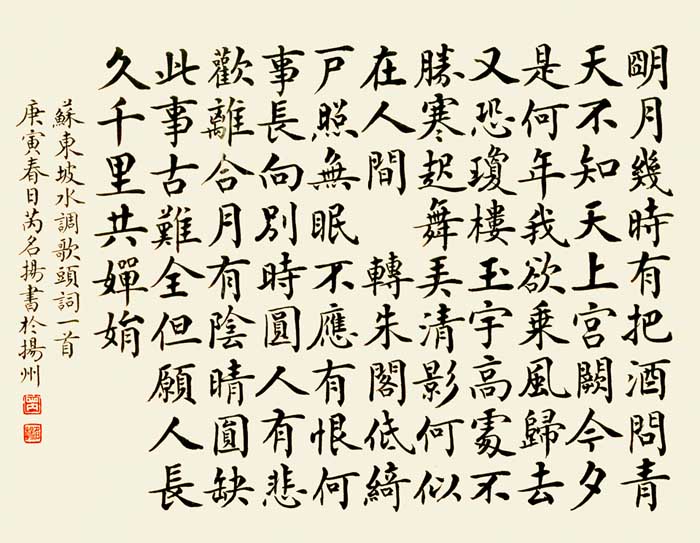 朙月幾時有把酒問青
天不知天上宮闕今夕
是何年我欲乘風歸去
又恐瓊樓玉宇高處不
勝寒起舞弄清影何似
在人間 轉朱閣低綺
戶照無眠 不應有恨何
事長向別時圓人有悲
歡離合月有陰晴圓缺
此事古難全但願人長
久千里共嬋娟
蘇東坡水調歌頭詞一首
庚寅春日芮名揚書於揚州